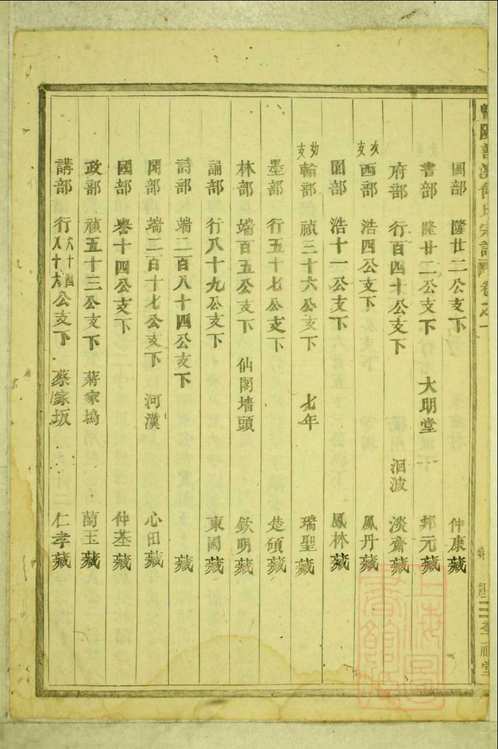 圖部 隆廿二公支下 仲康藏
書部 隆廿二公支下 大明堂 邦元藏
府部 行百四十公支下 洄波 淡齋藏
酉部 浩四公支下 鳳丹藏
園部 浩十一公支下 鳳林藏
翰部 禎三十六公支下 七年 瑞聖藏
墨部 行五十七公支下 楚碩藏
林部 端百五公支下 仙閣墻頭 欽明藏
誦部 行八十九公支下 東園藏
詩部 端二百八十四公支下 藏
聞部 端二百十七公支下 河漢 心田藏
國部 泰十四公支下 仲基藏
政部 禎五十三公支下 蔣家塢 蘭玉藏
講部 行八十六公支下 蔡家坂 仁孝藏